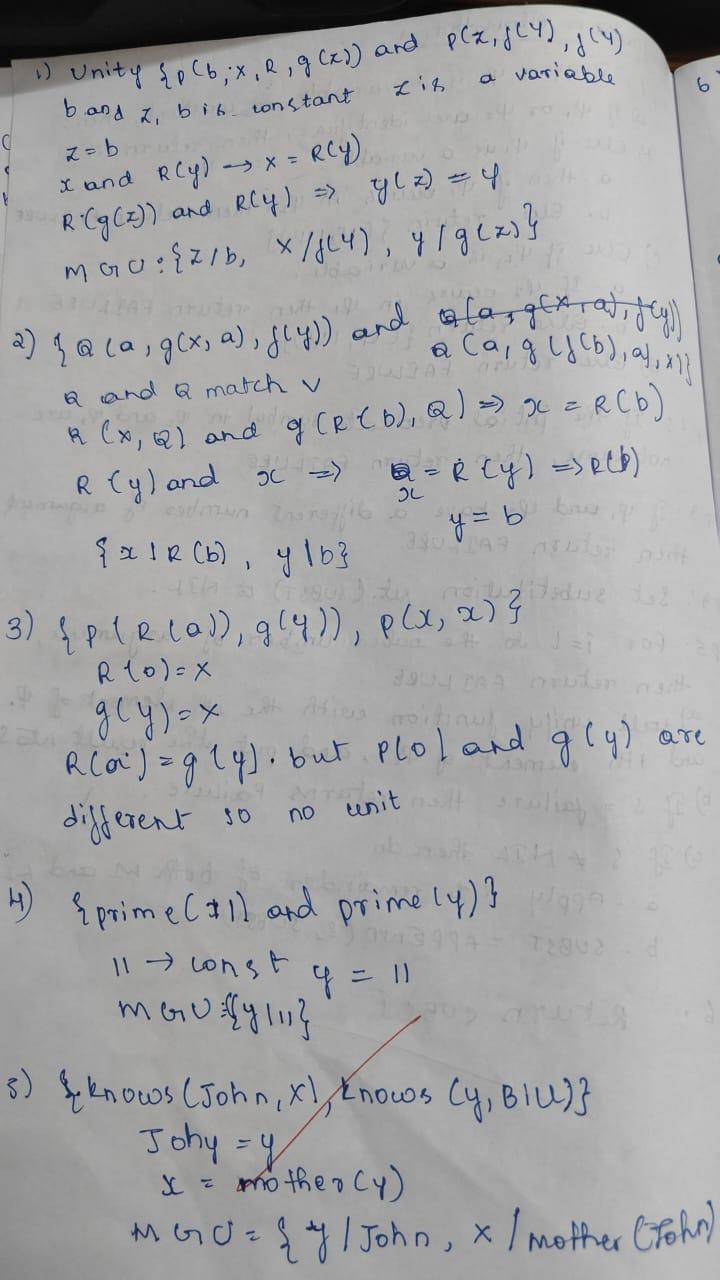 1) Unity {p(b, x, R, g(z)) and p(z, f(y), f(y)
b and z, b is constant z is a variable
z = b
x and R(y) → x = R(y)
R(g(z)) and R(y) ⇒ y(z) = y
MGU : {z/b, x/f(y), y/g(z)}
2) {Q(a, g(x, a), f(y)) and Q(a, g(x, a), f(y))
Q(a, g(f(b), a), x)}
Q and Q match v
R(x, Q) and g(R(b), Q) ⇒ x = R(b)
R(y) and x ⇒ x = R(y) ⇒ R(b)
y = b
{x|R(b), y|b}
3) {p(R(a)), g(y)), p(x, x)}
R(o) = x
g(y) = x
R(a) = g(y). but p(o) and g(y) are
different so no unit
4) {prime(11) and prime(y)}
11 → const y = 11
MGU = {y|11}
5) {knows(John, x), knows(y, Bill)}
Johy = y
x = mother(y)
MGU = {y/John, x/mother(John)
6